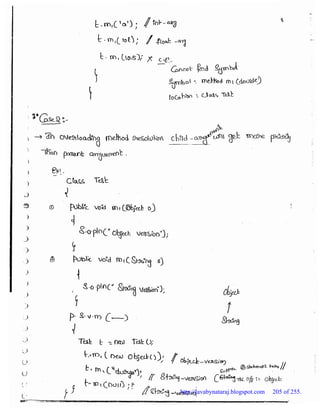 t.m1('a'); // int-arg
t.m1(10l); // float-arg
t.m1(10.5); x C.E.
Cannot find symbol
Symbol : method m1(double)
}
location : class Test
}
Case 2:-
→ In overloading method resolution child-argument will get more priority
than parent argument.
Ex:
class Test
{
① public void m1(Object o)
{
S.o.pln("Object version");
}
② public void m1(String s)
{
S.o.pln("String version");
}
Object
↑
String
p.s.v.m(—)
{
Test t = new Test();
t.m1(new Object()); // object-version
t.m1("durga"); // String-version
t.m1(null); // String-version
}
}
http://javabynataraj.blogspot.com 205 of 255.